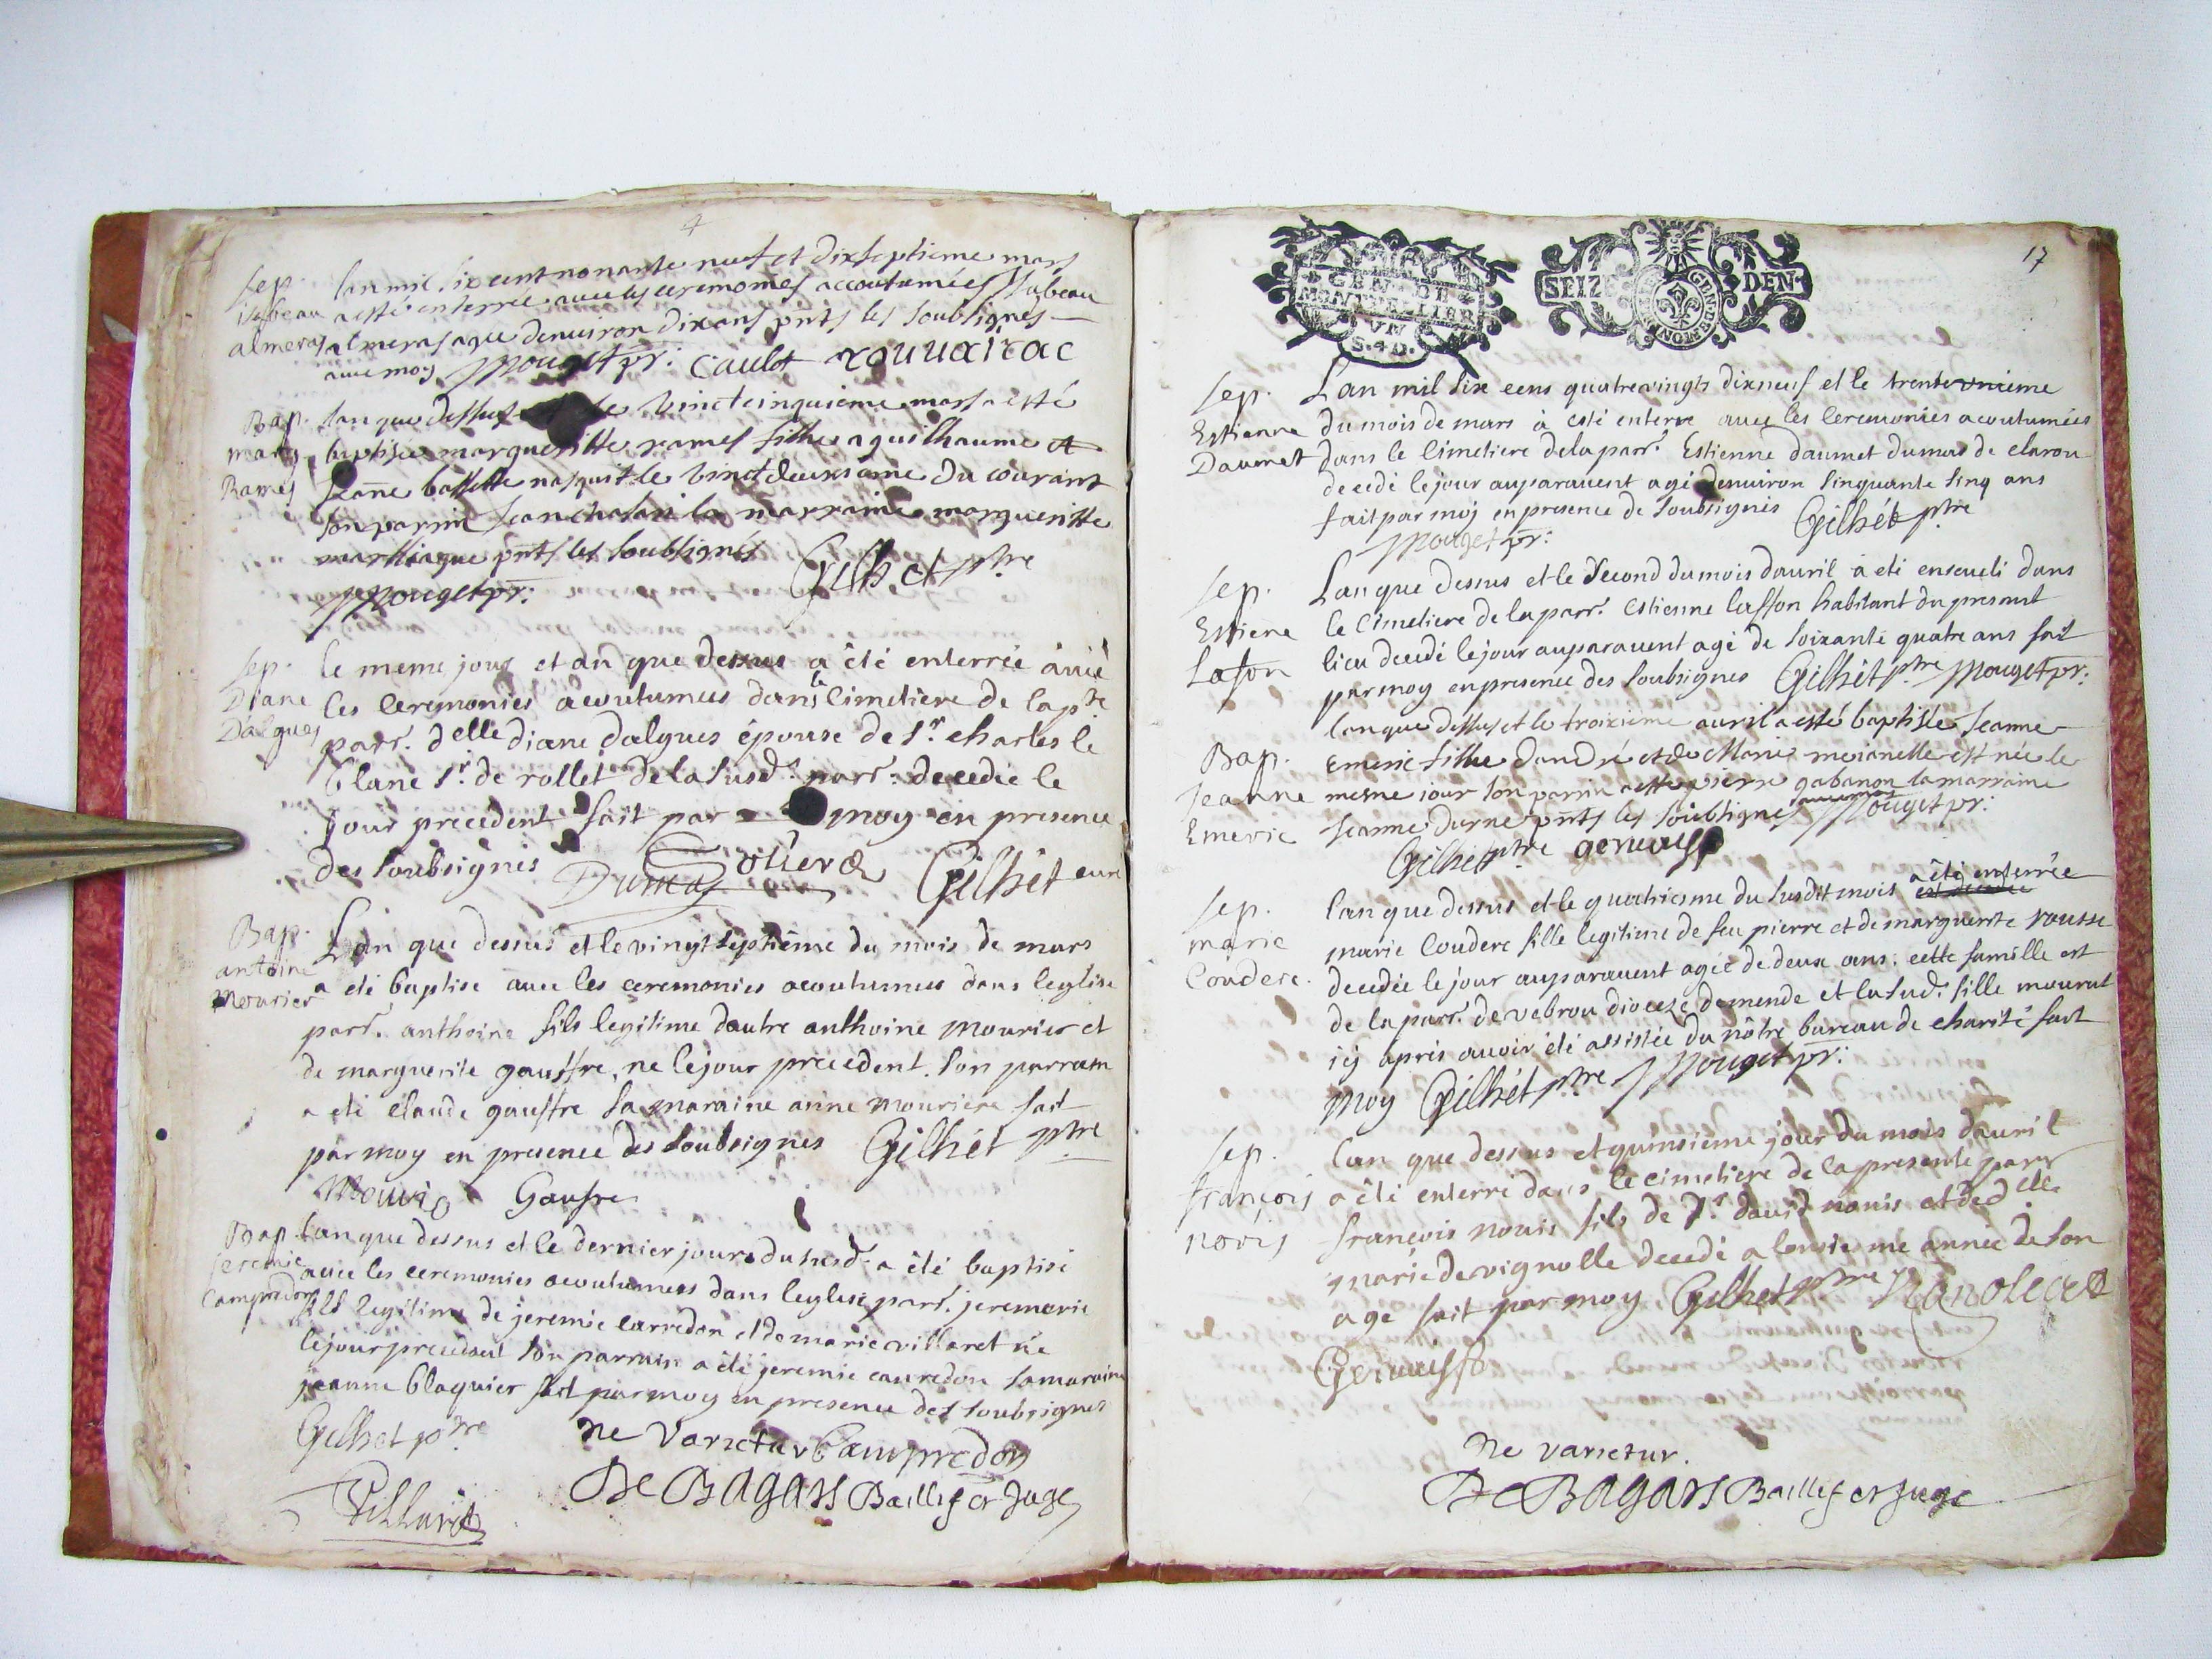 4
Sep. lan mil six cent nonante neuf et dixseptieme mars
isabeau a esté enterrée avec les ceremonies accoutumées Isabeau
almeras almeras agee denuiron dix ans pnts les soubsignes
auec moy Mouget pr. Caulet rouuairac
Bap. lan que dessus le vinct cinquieme mars a esté
marg. baptisée margueritte rames fille a guilhaume et
Rames Jeane bassette nasquit le vinct deuxsieme du courant
son parrin Jean la marraine margueritte
pnts les soubsignés
Mouget pr. Gilhet ptre
Sep. le meme jour et an que dessus a été enterrée auec
Diane les ceremonies acoutumees dans le cimetiere de la pnte
D'algues parr. delle diane dalgues épouse de sr. charles le
blanc sr. de rollet de la susd. parr. decedée le
jour precedent fait par moy en presence
des soubsignés Dumas Gilhét curé
Bap. Lan que dessus et le vingt septiéme du mois de mars
antoine a eté baptise auec les ceremonies acoutumees dans leglise
mourier parr. anthoine fils legitime dautre anthoine mourier et
de marguerite gauffre, ne le jour precedent. Son parrain
a eté claude gauffre sa maraine anne mouriere fait
par moy en presence des soubsignes Gilhét ptre
Gaufre
Bap. lan que dessus et le dernier jour du susd. a été baptisé
jeremie auec les ceremonies acoutumees dans leglise parr. jeremie
Campredon fils legitime de jeremie camredon et de marie villaret né
le jour precedent son parrain a été jeremie camredon sa maraine
jeanne blaquier fait par moy en presence des soubsignes
Gilhet ptre ne varietur Campredon
Villaret De Bagars Baillif et Juge
17
GEN. DE
MONTPELLIER
VN
S. 4 D.
SEIZE DEN.
Sep. Lan mil six cens quatrevingts dixneuf et le trente vnieme
Estienne du mois de mars à esté enterre auec les ceremonies acoutumées
Daumet dans le cimetiere de la parr. Estienne daumet du mas de clarou
decedé le jour auparauent agé denuiron sinquante sinq ans
fait par moy en presence de soubsignés Gilhét ptre
Mouget pr.
Sep. Lan que dessus et le second du mois dauril a eté enseueli dans
Estiene le cimetiere de la parr. Estienne lasson habitant du present
Lason lieu decedé le jour auparauent agé de soixante quatre ans fait
par moy en presence des soubsignes Gilhét ptre Mouget pr.
lan que dessus et le troixieme auril a esté baptisée Jeanne
Bap. Emeric fille dandré et de Marie meianelle est née le
Jeanne mesme iour son parrin a esté pierre gabanon la marraine
Emeric Jeanne durne pnts les soubsignes auec moy Mouget pr.
Gilhét ptre geruais
Sep. lan que dessus et le quatriesme du susdit mois a été enterrée
marie marie Couderc fille legitime de feu pierre et de marguerite rousse
Couderc. decedée le jour auparauent agée de deux ans. cette famille est
de la parr. de vebrou dioceze de mende et la sud. fille mourut
icy aprés auoir été assistée du nôtre bureau de charité fait
moy Gilhét ptre Mouget pr.
Sep. lan que dessus et quinsieme jour du mois dauril
françois a été enterré dans le cimetiere de la presente parr
nouis françois nouis fils de sr. dauid nouis et de delle
marie de vignolle decedé a lonsieme année de son
age fait par moy Gilhet ptre
Geruais
ne varietur.
De Bagars Baillif et Juge